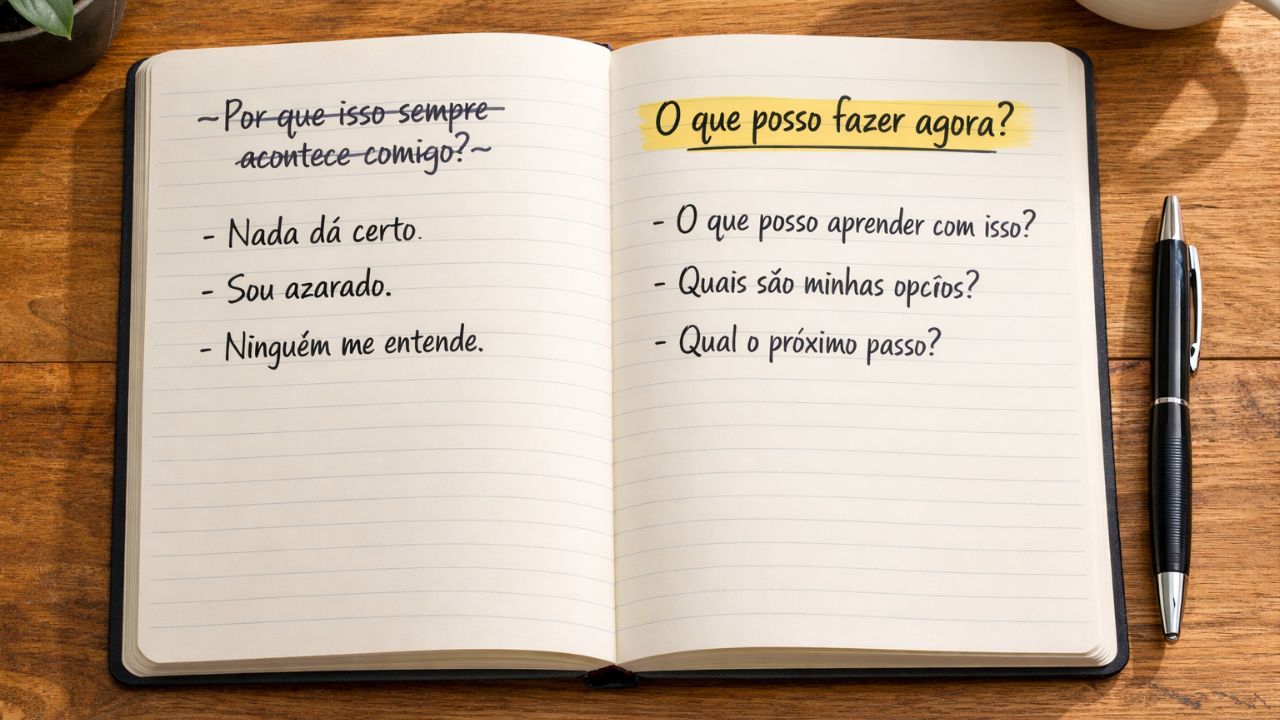 ~Por que isso sempre
acontece comigo?~
- Nada dá certo.
- Sou azarado.
- Ninguém me entende.
O que posso fazer agora?
- O que posso aprender com isso?
- Quais são minhas opcîos?
- Qual o próximo passo?